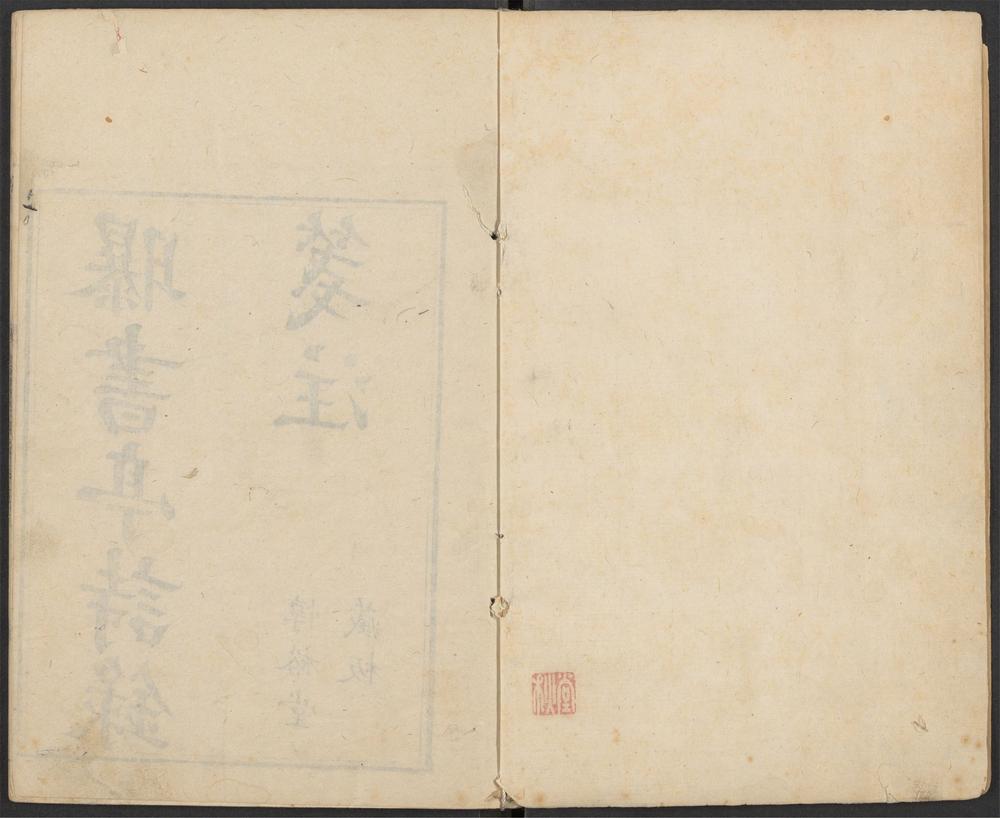 曝書亭詩錄
箋注
惇裕堂
藏板